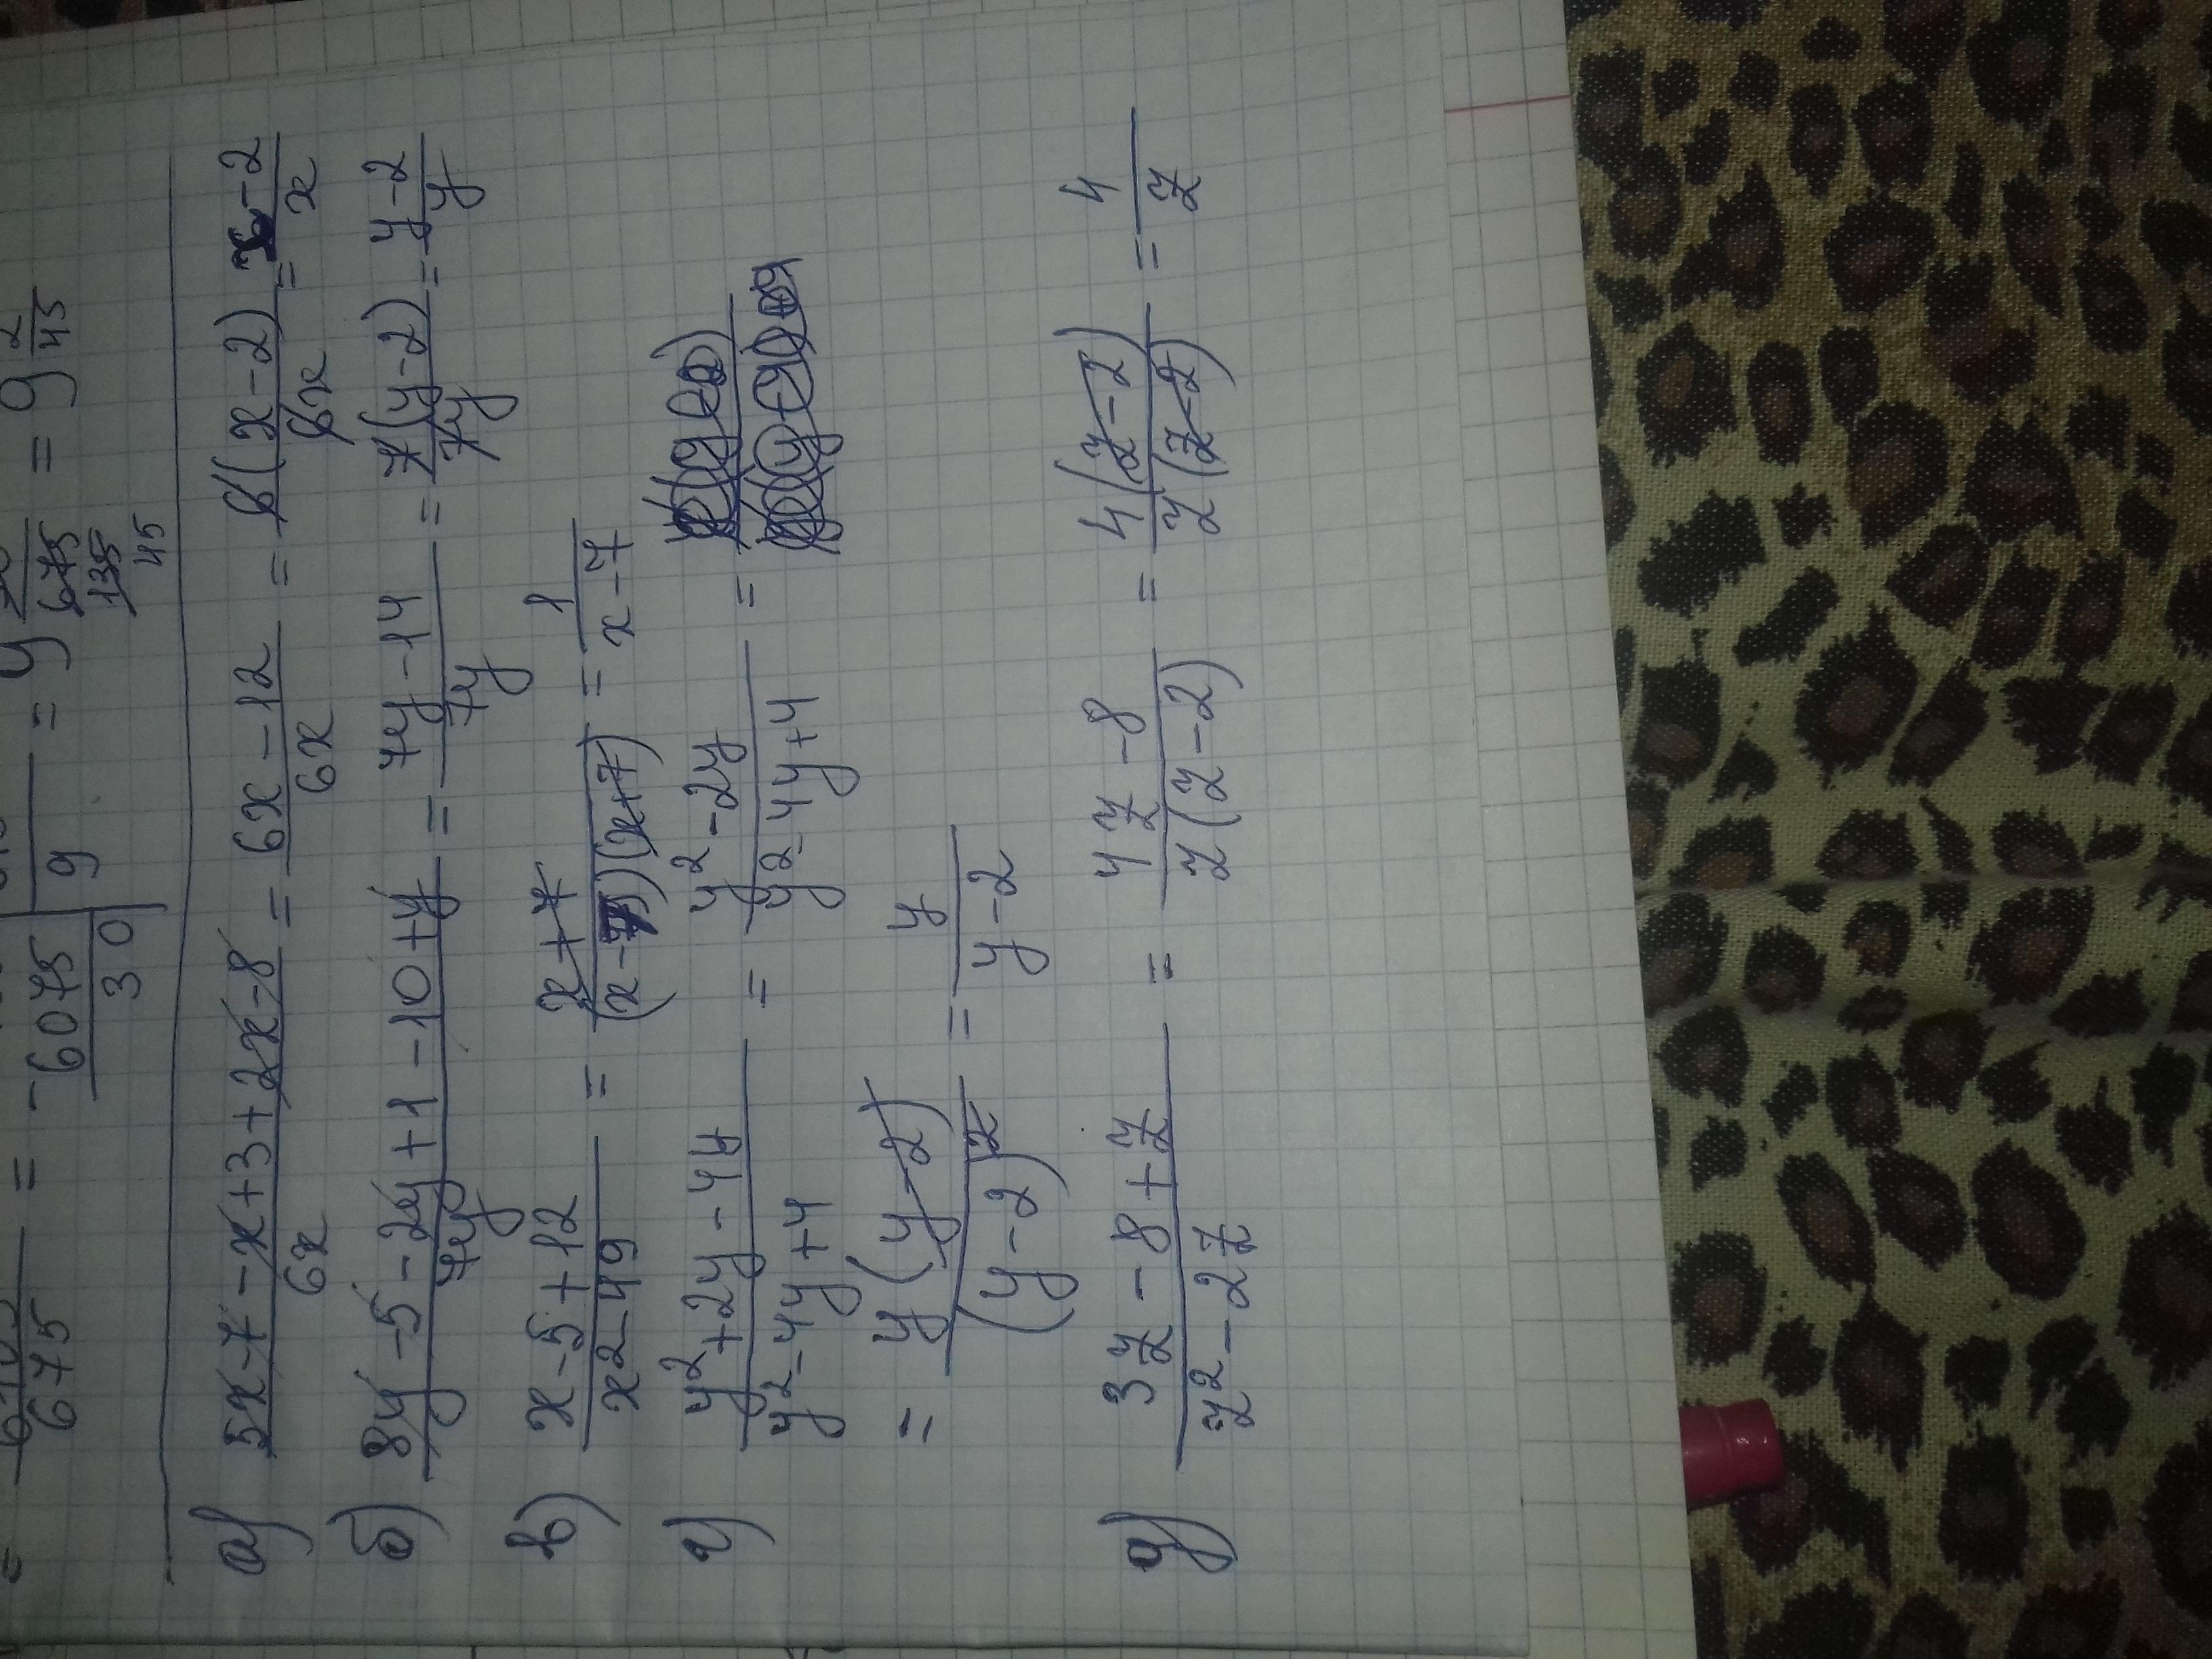 = 675 = - 6075 | 9 = 9 675 135 45 = 9 2/45
30
а) (5x-7-x+3+2x-8)/(6x) = (6x-12)/(6x) = 6(x-2)/(6x) = (x-2)/x
б) (8y-5-2y+1-10+y)/(7y) = (7y-14)/(7y) = 7(y-2)/(7y) = (y-2)/y
в) (x-5+12)/(x²-49) = (x+7)/((x-7)(x+7)) = 1/(x-7)
г) (y²+2y-4y)/(y²-4y+4) = (y²-2y)/(y²-4y+4) =
= y(y-2)/(y-2)² = y/(y-2)
д) (3z-8+z)/(z²-2z) = (4z-8)/(z(z-2)) = 4(z-2)/(z(z-2)) = 4/z